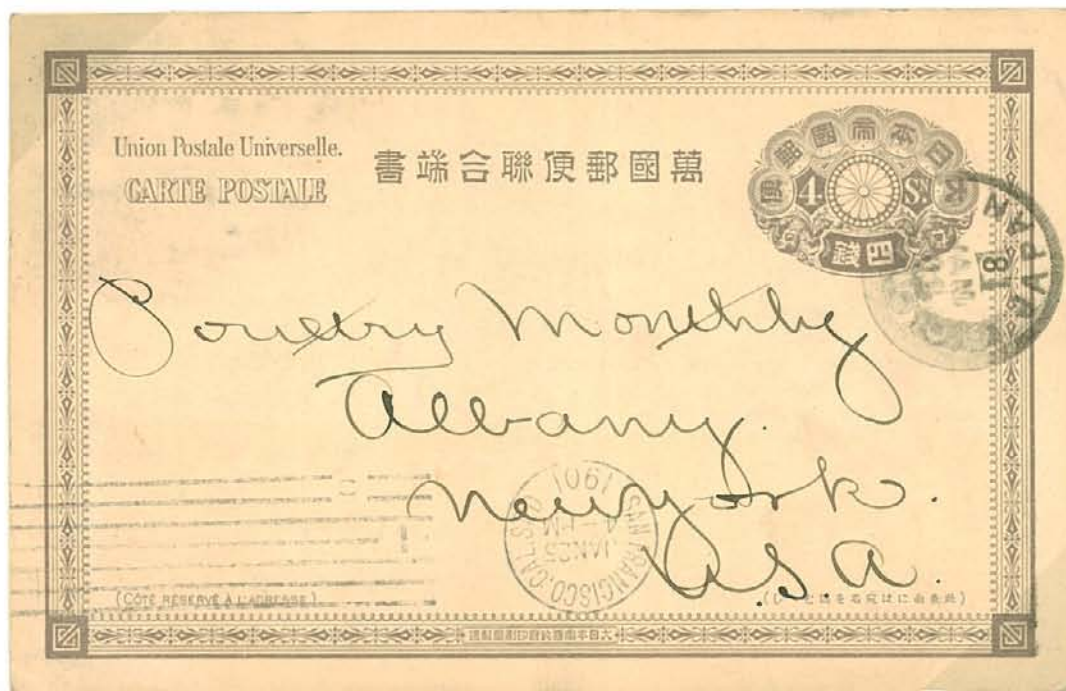 Union Postale Universelle.
CARTE POSTALE
萬國郵便聯合端書
大日本帝國郵便
4 Sn
四錢
JAPAN
8
JAN
Poultry Monthly
Albany.
New York.
U.S.A.
SAN FRANCISCO, CAL.
JAN 25
1901
(CÔTÉ RÉSERVÉ A L'ADRESSE)
大日本帝國政府印刷局製造